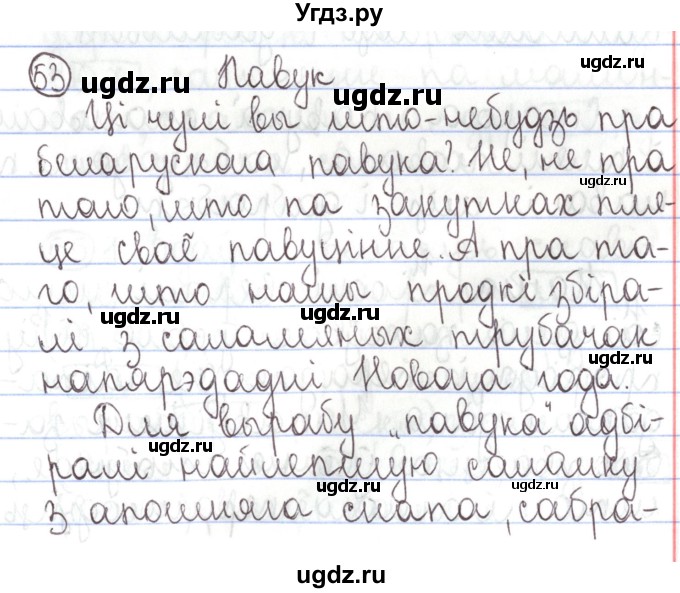 Угдз.ру
53 Павук
Ці чулі вы што-небудзь пра
беларускага павука? Не, не пра
таго, што па закутках пля-
це сваё павуцінне. А пра та-
го, што нашы продкі збіра-
лі з саламяных трубачак
напярэдадні Новага года.
Для вырабу „павука“ адбі-
ралі найлепшую саломку
з апошняга снапа, сабра-
ugdz.ru
ugdz.ru
ugdz.ru
ugdz.ru
ugdz.ru
ugdz.ru
ugdz.ru
ugdz.ru
ugdz.ru
ugdz.ru
ugdz.ru
ugdz.ru